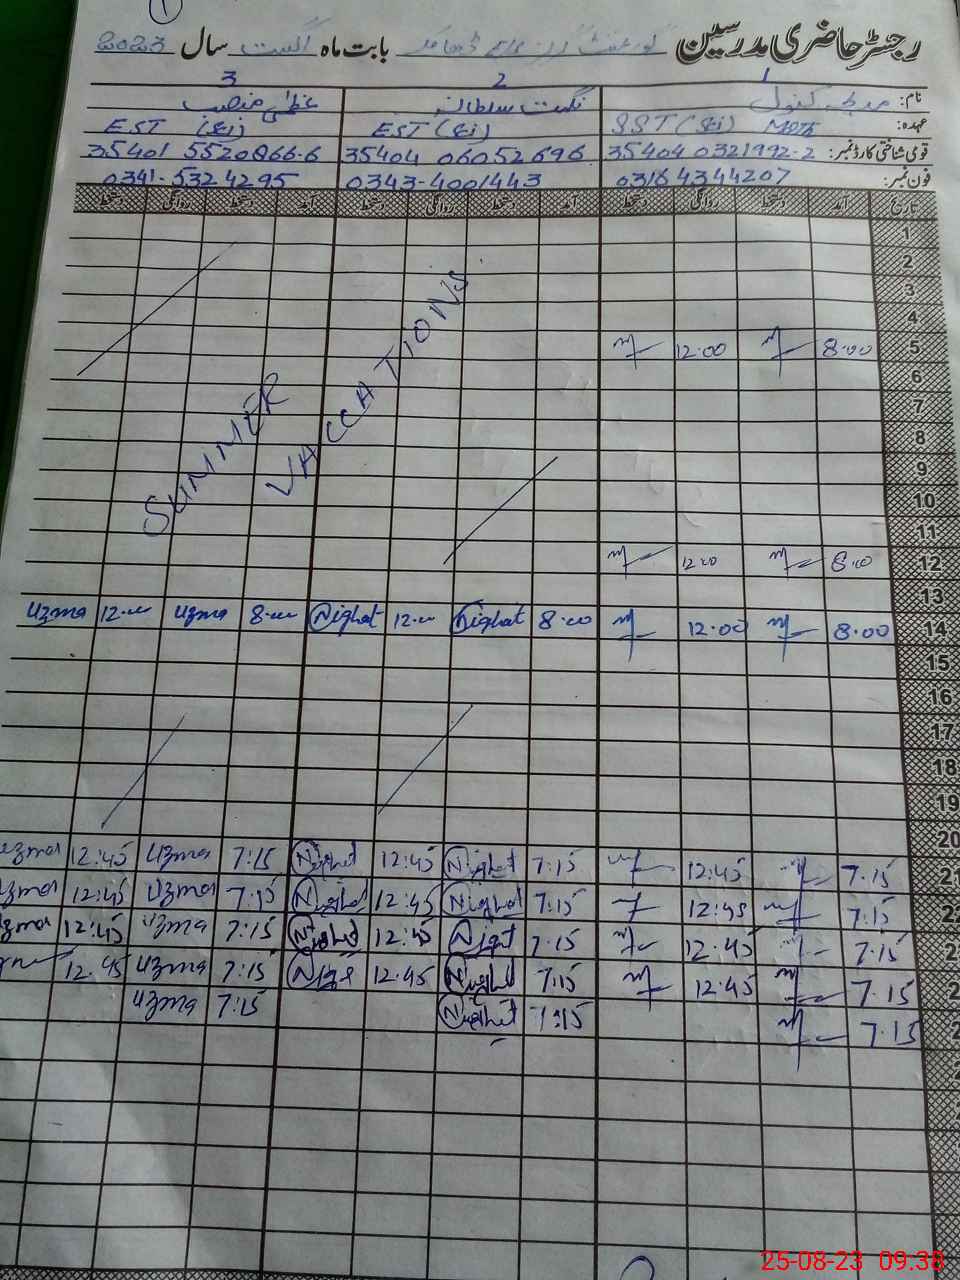 1
رجسٹر حاضری مدرسین بابت ماہ اگست سال 2023
1 2 3
نام: مدیحہ کنول نگہت سلطانہ عظمیٰ
عہدہ: SST (Sci) EST (Sci) EST (Sci)
قومی شناختی کارڈ نمبر: 35404 0321992-2 35404 06052696 35401 5520866-6
فون نمبر: 03164344207 0343-4001443 0341-5324295
تاریخ آمد دستخط روانگی دستخط آمد دستخط روانگی دستخط آمد دستخط روانگی دستخط
1
2
3
4
5 8.00 12.00
6
7
8
9
10
11
12 8.00 12.00
13
14 8.00 12.00 8.00 Nighat 12.00 Nighat 8.00 Uzma 12.00 Uzma
15
16
17
18
19
20
SUMMER
VACCATIONS
21 7.15 12:45 7:15 Nighat 12:45 Nighat 7:15 Uzma 12:45 Uzma
7:15 12:45 7:15 Nighat 12:45 Nighat 7:15 Uzma 12:45 Uzma
7.15 12.45 7:15 12:45 7:15 Uzma 12:45 Uzma
7.15 12.45 7:15 Nighat 12.45 7:15 Uzma 12.45
7.15 7:15 Nighat 7:15 Uzma
25-08-23 09.38